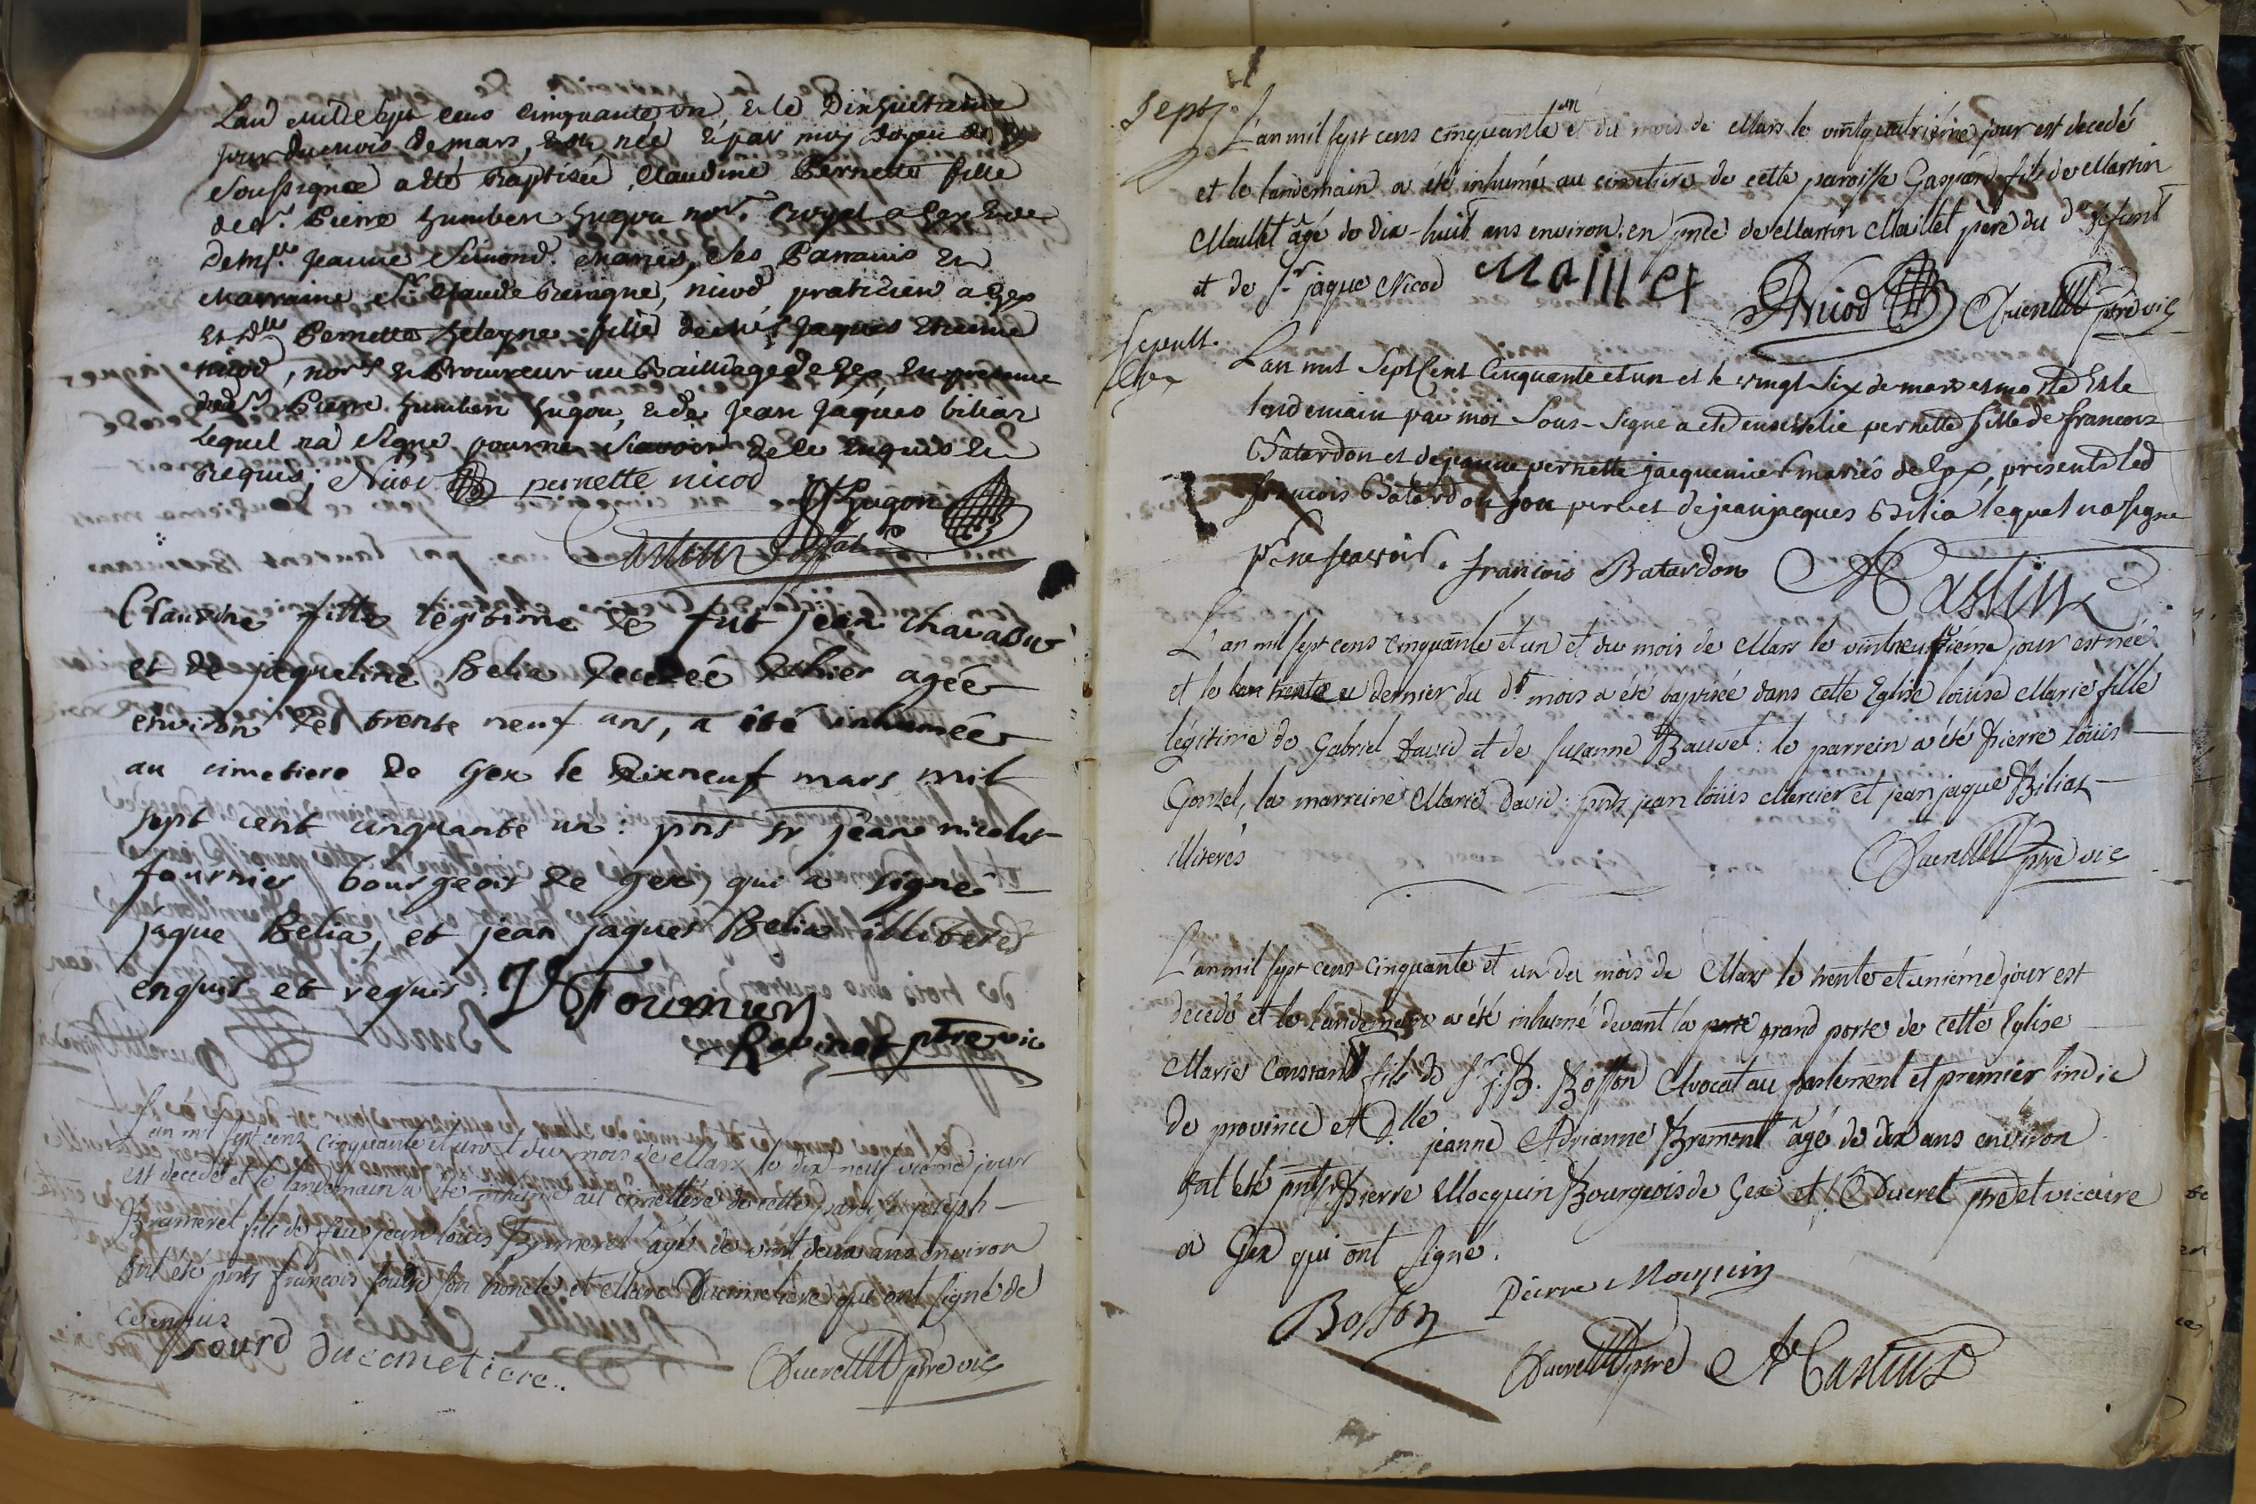 L'an mil sept cens cinquante un, & le Dixhuitieme
jour du mois de mars, est née & par moy doyen de Gex
soussignée a été Baptisée, Claudine Pernette fille
de Sr. Pierre humbert hugon nore. royal a Gex & de
Jeanne Simond. Mariés, Ses Parrains &
Marraine Sr Claude nicod praticien a Gex
Et Dlle Pernette fille de me Jaques Etienne
nicod, nore & Procureur au Bailliage de Gex En presence
dud. Sr. Pierre humbert hugon, & de Jean Jaques biliaz
Lequel na Signé pour ne Scavoir de ce Enquis &
Requis; Nicod pernette nicod
Hugon
Castin
Claudine fille legitime de fut jean
et de jaqueline Belia decedée d'hier agée
environ de trente neuf ans, a été inhumée
au cimetiere de Gex le dixneuf mars mil
sept cent cinquante un : pns sr jean nicolas
fournier bourgeois de gex, qui a signé
jaque Belia, et jean jaques Belia illiterés
enquis et requis. Fournier
ptre vic
L'an mil sept cens cinquante et un et du mois de Mars le dix neuf vieme jour
est decedé et le landemain a été inhumé au cimetiere de cette paroisse joseph
Brameret fils de feu jean loüis Brameret agé de vint deux ans environ
ont été pnts francois sourd son oncle et Marc Ducimetiere qui ont signé de
ce enquis
sourd ducometiere.. Ducret ptre vic
Sept.
L'an mil sept cens cinquante et un du mois de Mars le vintquatrieme jour est decedé
et le landemain a été inhumé au cimetiere de cette paroisse Gaspard fils de Martin
Maillet âgé de dix-huit ans environ. en pnce de Martin Maillet père du dt defunt
et de Sr jaque Nicod Maillet Nicod Ducret ptre vic
sepult.
Gex
L'an mil Sept Cent Cinquante et un et le vingt Six de mars est morte Et le
lendemain par moi Sous-Signé a eté ensevelie pernette fille de francois
Batardon et de jeanne pernette jacquemier mariés de Gex, presents led
francois Batardon son pere et de jean jacques Bilia lequel na signé
pr ne scavoir. francois Batardon Castin
L'an mil sept cens cinquante et un et du mois de Mars le vintneufvieme jour est née
et le trente et dernier du dt mois a été baptisée dans cette Eglise louise Marie fille
légitime de Gabriel david et de suzanne Bauvet : le parrein a été pierre loüis
Gonsel, la marreine Marie david : pnts jean loüis Mercier et jean jaque Biliaz
illiterés Ducret ptre vic
L'an mil sept cens cinquante et un du mois de Mars le trente et unième jour est
décedé et le landemain a été inhumé devant la grand porte de cette Eglise
Marie Constant fils de Sr J. B. Bosson Avocat au parlement et premier sindic
de province et Dlle jeanne Adrianne Bremont âgé de dix ans environ
ont été pnts Sr Pierre Mocquin Bourgeois de Gex et Sr Ducret ptre et vicaire
a Gex qui ont Signé.
Bosson Pierre Moquin
Ducret ptre Castin